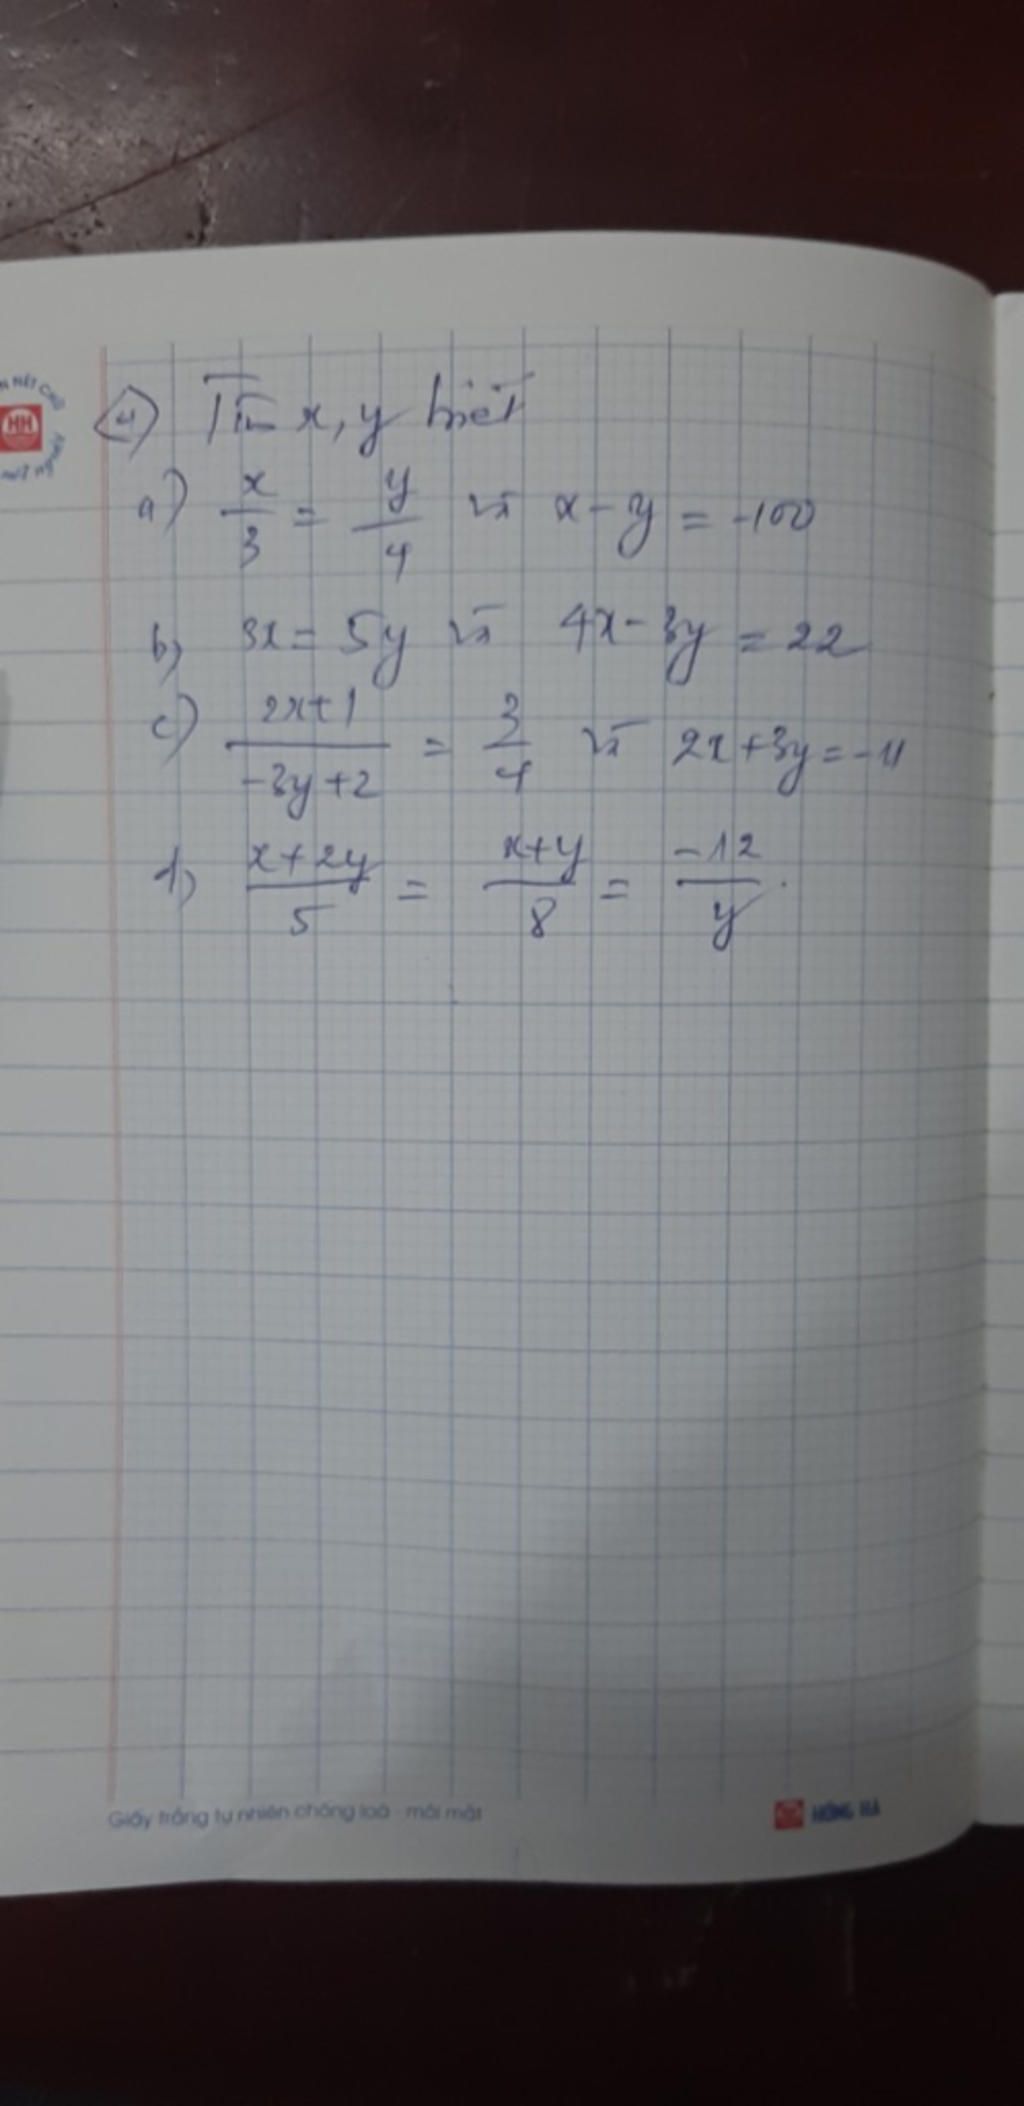 ④ Tìm x, y biết
a) x/3 = y/4 và x - y = -100
b) 3x = 5y và 4x - 3y = 22
c) (2x+1)/(-3y+2) = 3/4 và 2x + 3y = -11
d) (x+2y)/5 = (x+y)/8 = -12/y.
HH
Giấy trắng tự nhiên chống loá - mỏi mắt
HỒNG HÀ